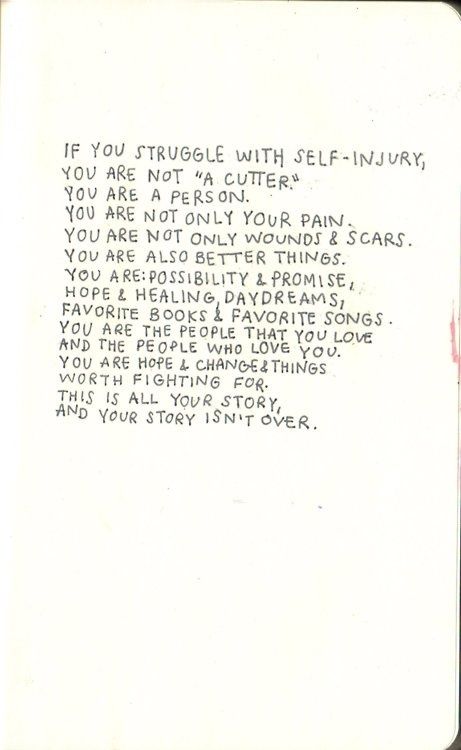 IF YOU STRUGGLE WITH SELF-INJURY,
YOU ARE NOT "A CUTTER."
YOU ARE A PERSON.
YOU ARE NOT ONLY YOUR PAIN.
YOU ARE NOT ONLY WOUNDS & SCARS.
YOU ARE ALSO BETTER THINGS.
YOU ARE: POSSIBILITY & PROMISE,
HOPE & HEALING, DAYDREAMS,
FAVORITE BOOKS & FAVORITE SONGS.
YOU ARE THE PEOPLE THAT YOU LOVE
AND THE PEOPLE WHO LOVE YOU.
YOU ARE HOPE & CHANGE & THINGS
WORTH FIGHTING FOR.
THIS IS ALL YOUR STORY,
AND YOUR STORY ISN'T OVER.